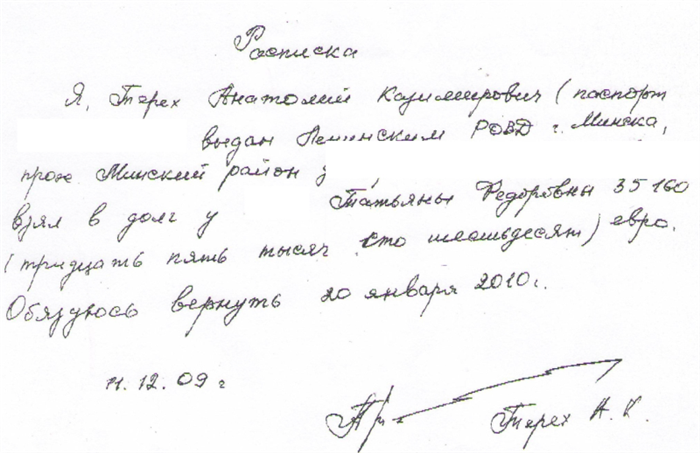 Расписка
Я, Терех Анатолий Казимирович (паспорт
выдан Ленинским РОВД г. Минска,
прож Минский район
взял в долг у Татьяны Федоровны 35 160
(тридцать пять тысяч сто шестьдесят) евро.
Обязуюсь вернуть 20 января 2010г.
11.12.09 г
Терех А. К.